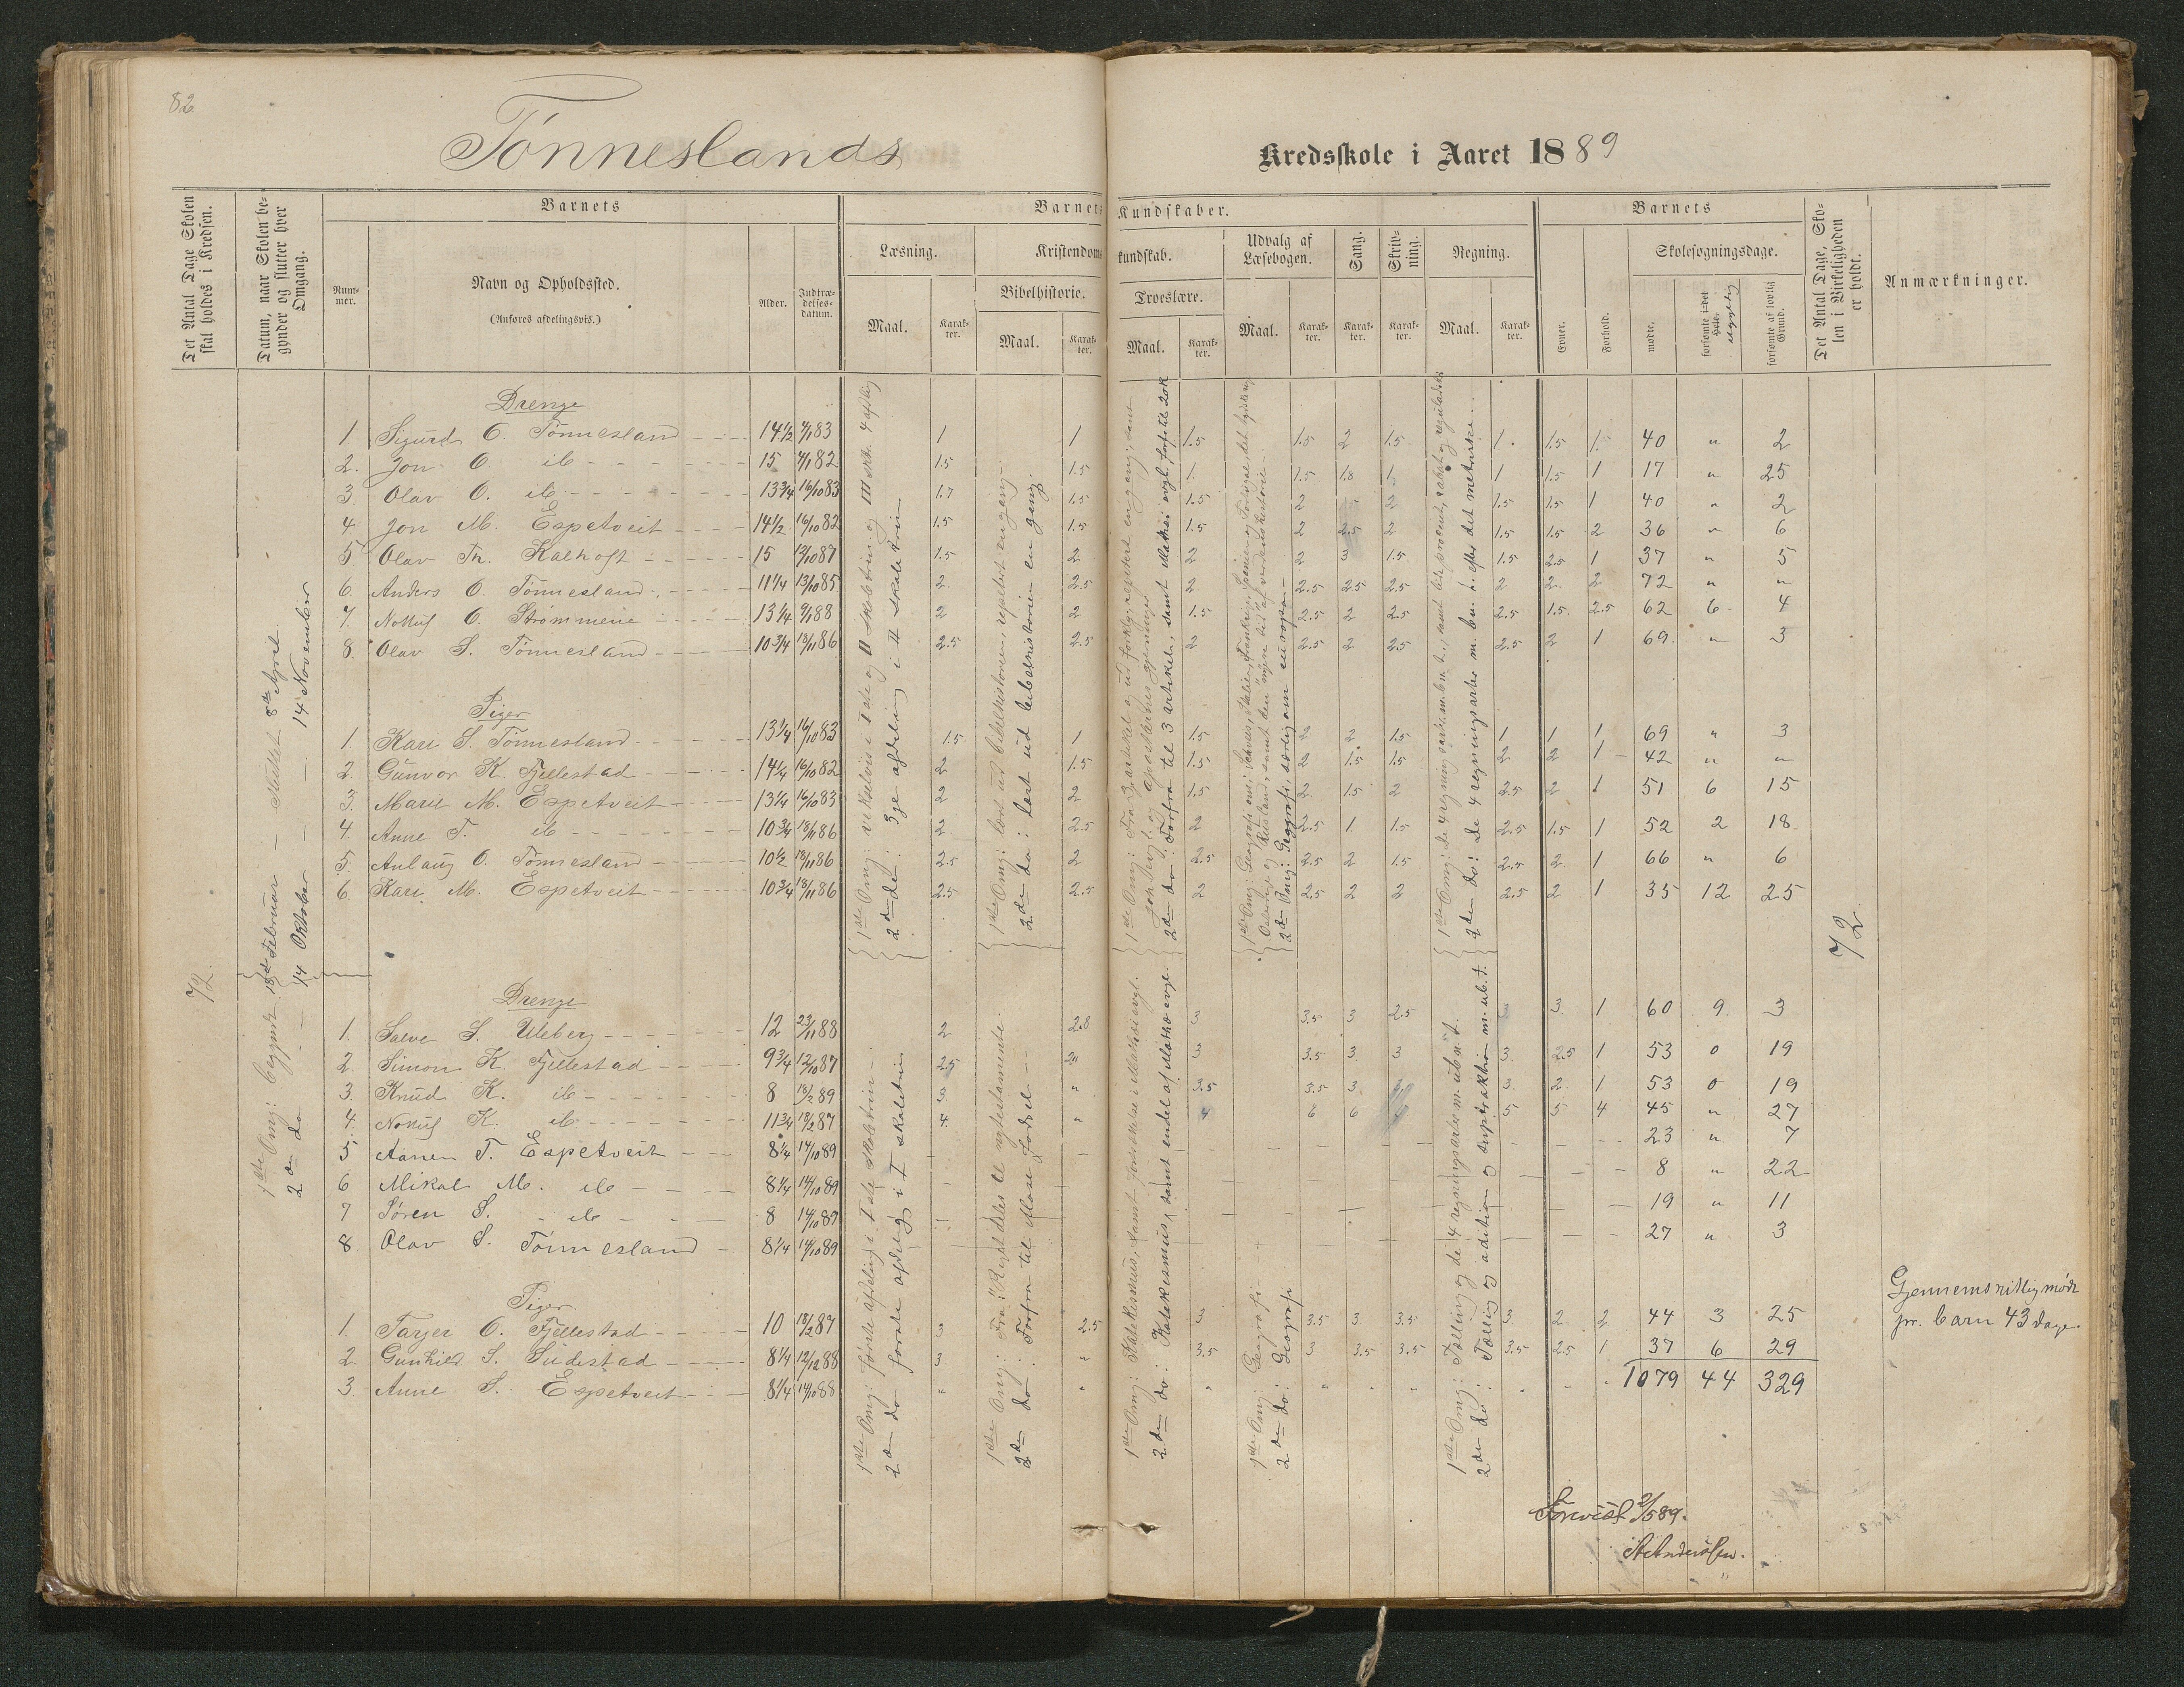 82
Tönneslands
Kredsskole i Aaret 1889
Det Antal Dage Skolen skal holdes i Kredsen.
Datum, naar Skolen begynder og slutter hver Omgang.
Barnets
Nummer.
Navn og Opholdssted.
(Anføres afdelingsvis.)
Alder.
Indtrædelsesdatum.
Barnets Kundskaber.
Læsning.
Maal.
Karakter.
Kristendomskundskab.
Bibelhistorie.
Maal.
Karakter.
Troeslære.
Maal.
Karakter.
Udvalg af Læsebogen.
Maal.
Karakter.
Sang.
Karakter.
Skrivning.
Karakter.
Regning.
Maal.
Karakter.
Barnets
Evner.
Forhold.
Skolesøgningsdage.
mødte.
forsømte i det Hele.
forsømte af lovlig Grund.
Det Antal Dage, Skolen i Virkeligheden er holdt.
Anmærkninger.
72.
1ste Omg: begynt 18de Februar – sluttet 8de April.
2den do – 14 Oktober – 14 November
Drenge
1 Sigurd O. Tönnesland 14½ 4/1 83 1 1 1.5 1.5 2 1.5 1. 1.5 1. 40 " 2
2. Jon O. ib 15 4/1 82 1.5 1.5 1. 1.5 1.8 1 1 1.5 1 17 " 25
3 Olav O. ib 13¾ 16/10 83 1.7 1.5 1.5 2 2 1.5 1.5 1 40 " 2
4. Jon M. Espetveit 14½ 16/10 82 1.5 1.5 1.5 2 2.5 2 1.5 1.5 2 36 " 6
5 Olav Th. Kalhoft 15 13/10 87 1.5 2 2 2 3 1.5 1.5 2.5 1 37 " 5
6. Anders O. Tönnesland 11¼ 13/10 85 2. 2.5 2 2.5 2.5 2.5 2 2. 2 72 " "
7. Notluf O. Strömmene 13¼ 9/1 88 2 2 1.5 2.5 2 2.5 2.5 1.5. 2.5 62 6 4
8. Olav S. Tönnesland 10¾ 18/11 86 2.5 2.5 2 2.5 2 2.5 2.5 2 1 69. " 3
Piger
1. Kari S. Tönnesland 13¼ 16/10 83 1.5 1 1.5 2 2 1.5 1 1 1 69 " 3
2. Gunvor K. Fjellestad 14¼ 16/10 82 2 1.5 1.5 2 1.5 1.5 2 2 1 42 " "
3. Marie M. Espetveit 13¼ 16/10 83 2 2 1.5 2 1.5 2 2.5 2 1 51 6 15
4. Anne T. ib 10¾ 18/11 86 2 2.5 2 2.5 1 1.5 2.5 1.5 1 52 2 18
5. Anlaug O. Tönnesland 10½ 18/11 86 2.5 2 2.5 2.5 2 1.5 2.5 2. 1 66 " 6
6. Kari M. Espetveit 10¾ 18/11 86 2.5 2.5 2 2.5 2 2 2.5 2 1 35 12 25
1ste Omg: vekselvis i I ste og II skoletrin og III skt. 4 afdlig
2den do: 3je afdeling i II skoletrin
1ste Omg: læst ud bibelhistorien, repetert en gang.
2den do: læst ud bibelhistorien en gang.
72
Drenge
1. Salve S. Uleberg 12 23/11 88 2 2.8 3 3.5 3 2.5 3 3. 1 60 9. 3
2. Simon K. Fjellestad 9¾ 12/10 87 2.5 3 3.5 3 3 3. 2.5 1 53 0 19
3. Knud K. ib 8 18/2 89 3 " 3.5 3.5 3 3. 2. 1 53 0 19
4. Notluf K. ib 11¾ 18/2 87 4. " 4 6 6 5 5 4 45 " 27
5 Aanen T. Espetveit 8¼ 14/10 89 23 " 7
6 Mikal M. ib 8¼ 14/10 89 8 " 22
7 Sören S. ib 8 14/10 89 19 " 11
8 Olav S. Tönnesland 8¼ 14/10 89 27 " 3
Piger.
1. Tarjer O. Fjellestad 10 18/2 87 3 2.5 3 3.5 3 3.5 3. 2 2 44 3 25
2. Gunhild S. Sudestad 8¼ 12/12 88 3. " 3.5 3 3.5 3.5 3.5 2.5 1 37 6 29
3. Anne S. Espetveit 8¼ 14/10 88 " " " " " "
1079 44 329
1ste Omg: første afdeling i I ste skoletrin
2den do forste afdeling i I skoletrin
2den do: Forfra til Mose fodsel
1ste Omg: Geografi
2den do: Geografi
Gjennemsnitlig mødt
pr. barn 43 dage.
Forevist 2/5 89.
A Andersen.